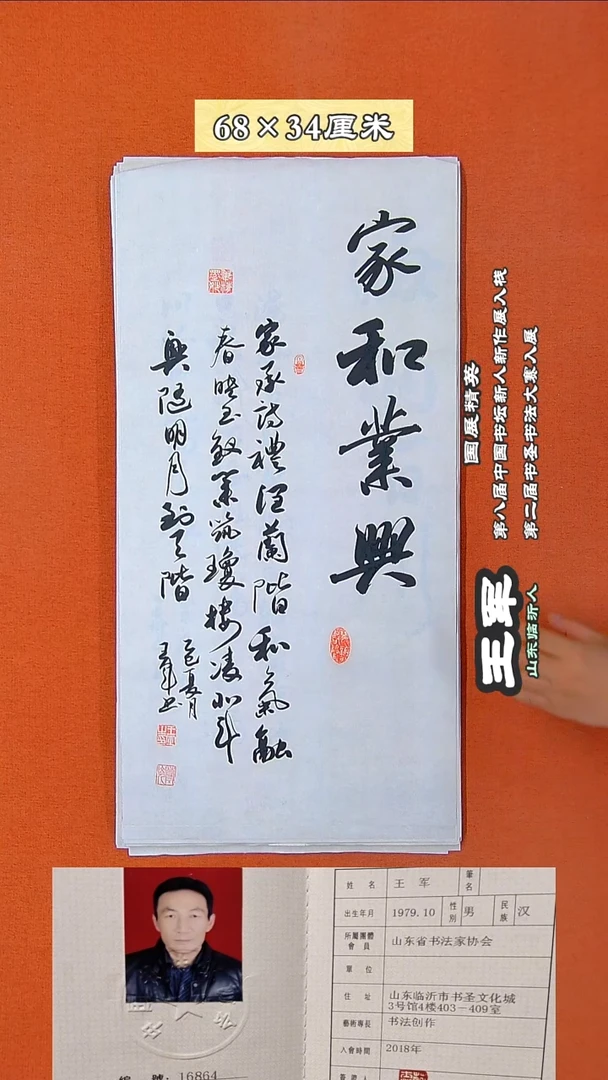 68×34厘米
家和業興
家承詩禮潤蘭階和氣融
春映玉
業筑瓊樓凌北斗
興隨明月到天階
乙巳夏月
王軍書
国展精英
第八届中国书坛新人新作展入展
第二届书圣书法大赛入展
王军
山东临沂人
姓名 王军 筆名
出生年月 1979.10 性別 男 民族 汉
所屬團體會員 山东省书法家协会
單位
住址 山东临沂市书圣文化城
3号馆4楼403－409室
藝術專長 书法创作
入會時間 2018年
簽證人
編號：16864